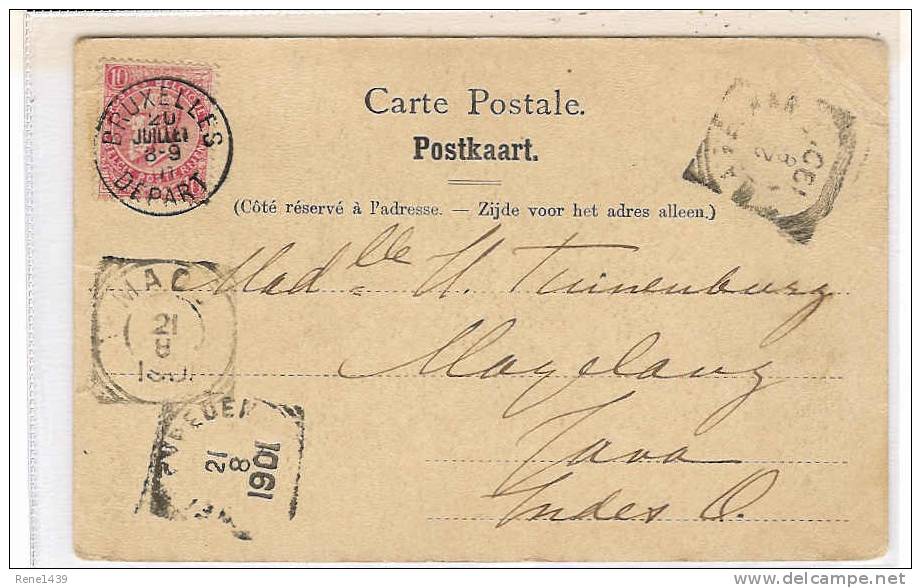 10
BRUXELLES
20
JUILLET
8-9
DEPART
Carte Postale.
Postkaart.
(Côté réservé à l'adresse. — Zijde voor het adres alleen.)
Madelle H. Tuinenburg
Magelang
Java
Indes O.
MAG
21
8
1901
21
8
1901
Rene1439
delcampe.net